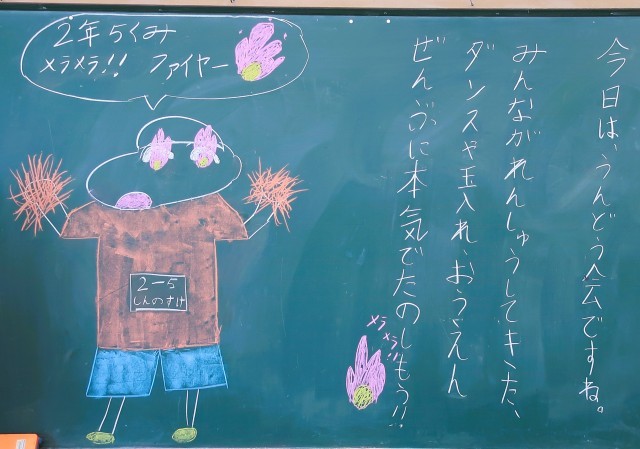 今日は、うんどう会ですね。
みんながれんしゅうしてきた、
ダンスや玉入れ、おうえん
ぜんぶに本気でたのしもう!!
メラメラ!!
2年5くみ
メラメラ!! ファイヤー
2-5
しんのすけ